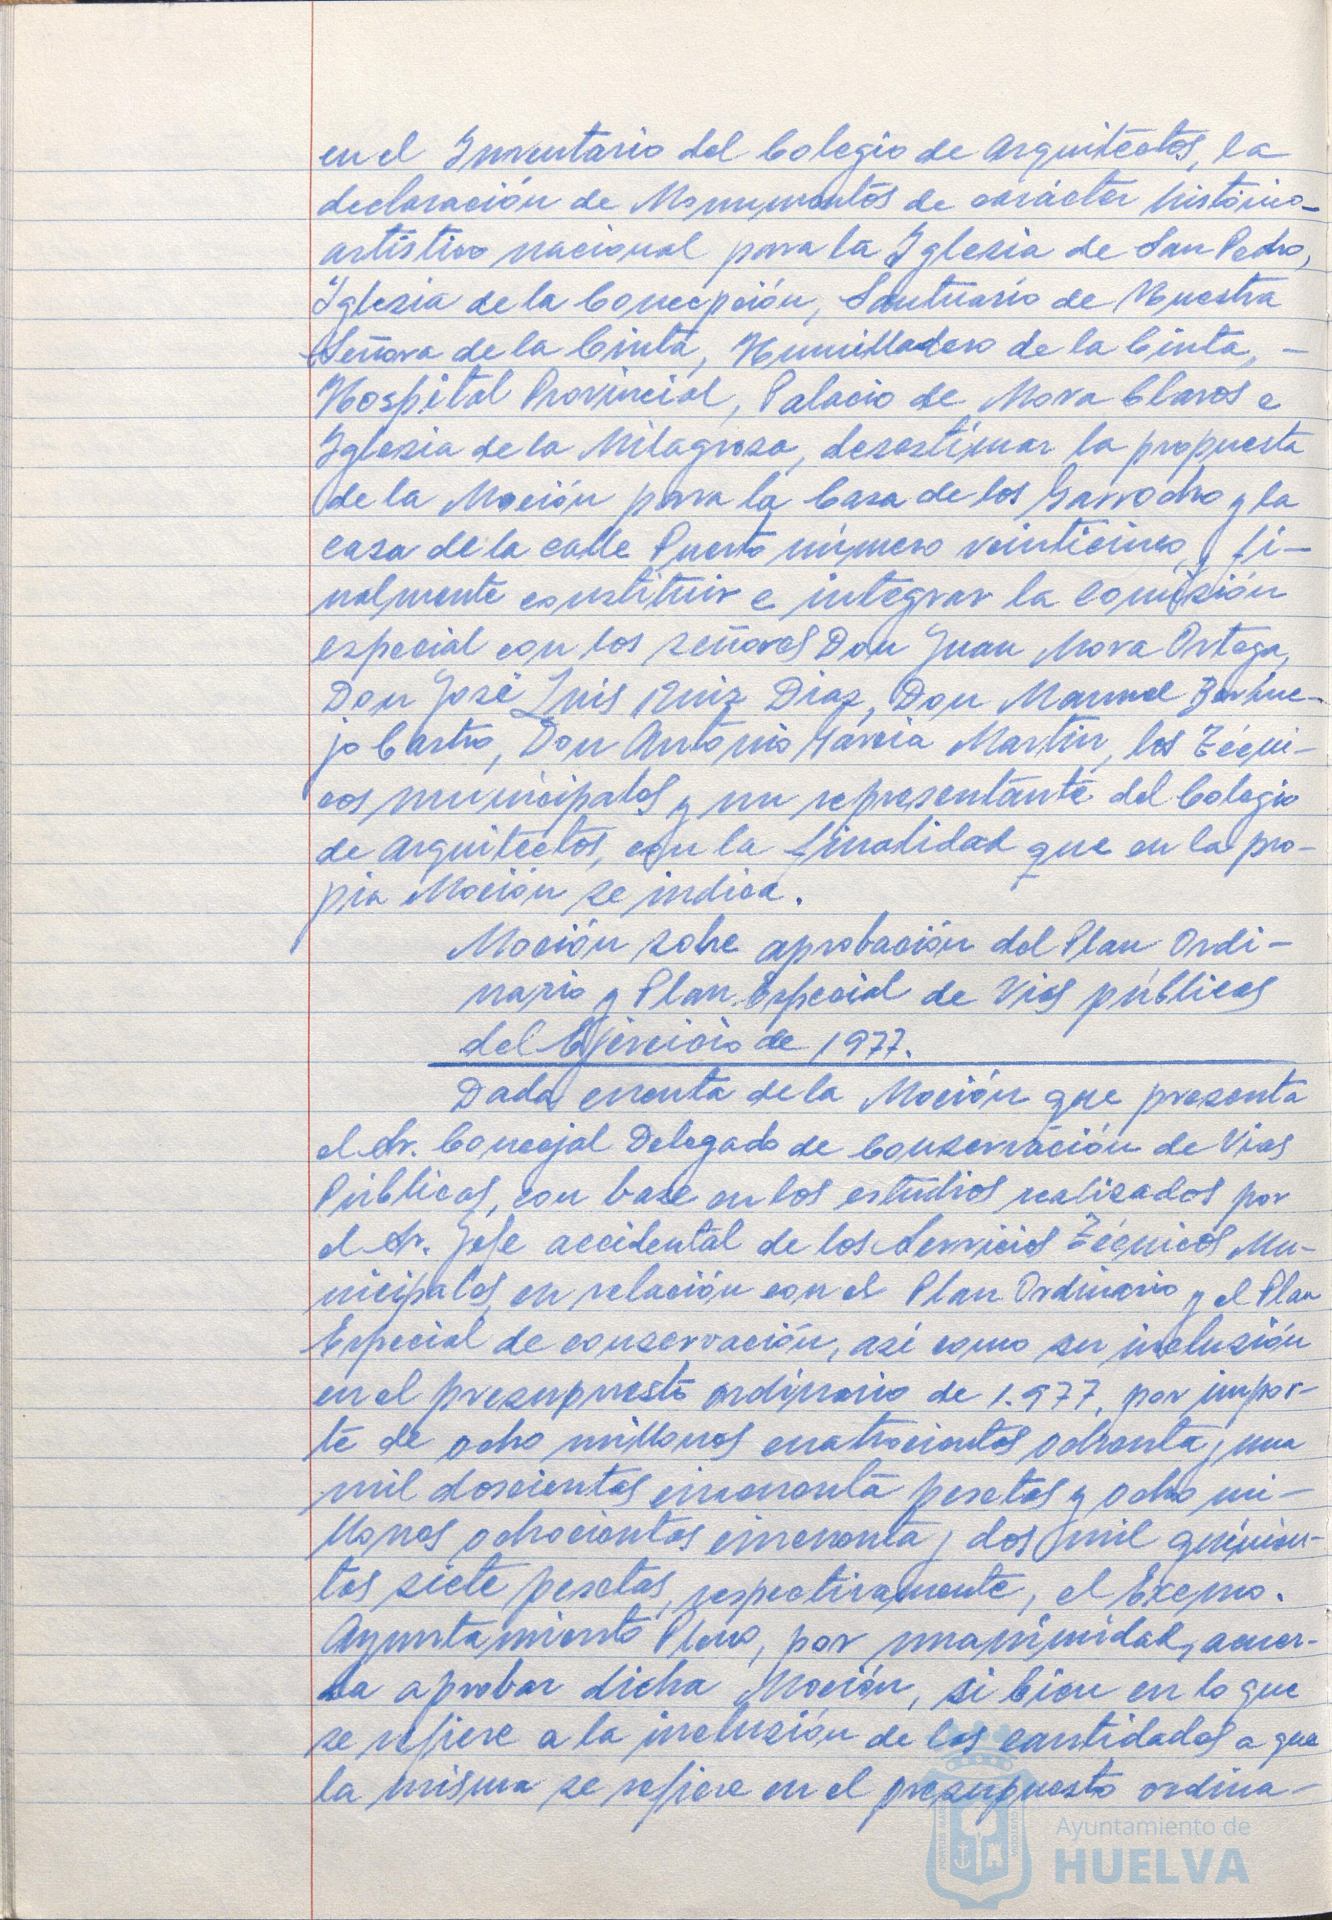 en el Inventario del Colegio de Arquitectos, la
declaración de Monumentos de carácter histórico-
artístico nacional para la Iglesia de San Pedro,
Iglesia de la Concepción, Santuario de Nuestra
Señora de la Cinta, Humilladero de la Cinta, -
Hospital Provincial, Palacio de Mora Claros e
Iglesia de la Milagrosa, desestimar la propuesta
de la Moción para la Casa de los Garrocho y la
casa de la calle Puerto número veinticinco, y fi-
nalmente constituir e integrar la Comisión
especial con los señores Don Juan Mora Ortega,
Don José Luis Ruiz Diaz, Don Manuel Berme-
jo Castro, Don Antonio García Martin, los Técni-
cos municipales y un representante del Colegio
de Arquitectos, con la finalidad que en la pro-
pia Moción se indica.
Moción sobre aprobación del Plan Ordi-
nario y Plan Especial de Vias públicas
del Ejercicio de 1977.
Dada cuenta de la Moción que presenta
el Sr. Concejal Delegado de Conservación de Vias
Públicas, con base en los estudios realizados por
el Sr. Jefe accidental de los Servicios Técnicos Mu-
nicipales en relación con el Plan Ordinario y el Plan
Especial de conservación, así como su inclusión
en el presupuesto ordinario de 1.977, por impor-
te de ocho millones cuatrocientos ochenta y una
mil doscientas cincuenta pesetas y ocho mi-
llones ochocientas cincuenta y dos mil quinien-
tas siete pesetas, respectivamente, el Excmo.
Ayuntamiento Pleno, por unanimidad, acuer-
da aprobar dicha Moción, si bien en lo que
se refiere a la inclusión de las cantidades a que
la misma se refiere en el presupuesto ordina-
Ayuntamiento de
HUELVA